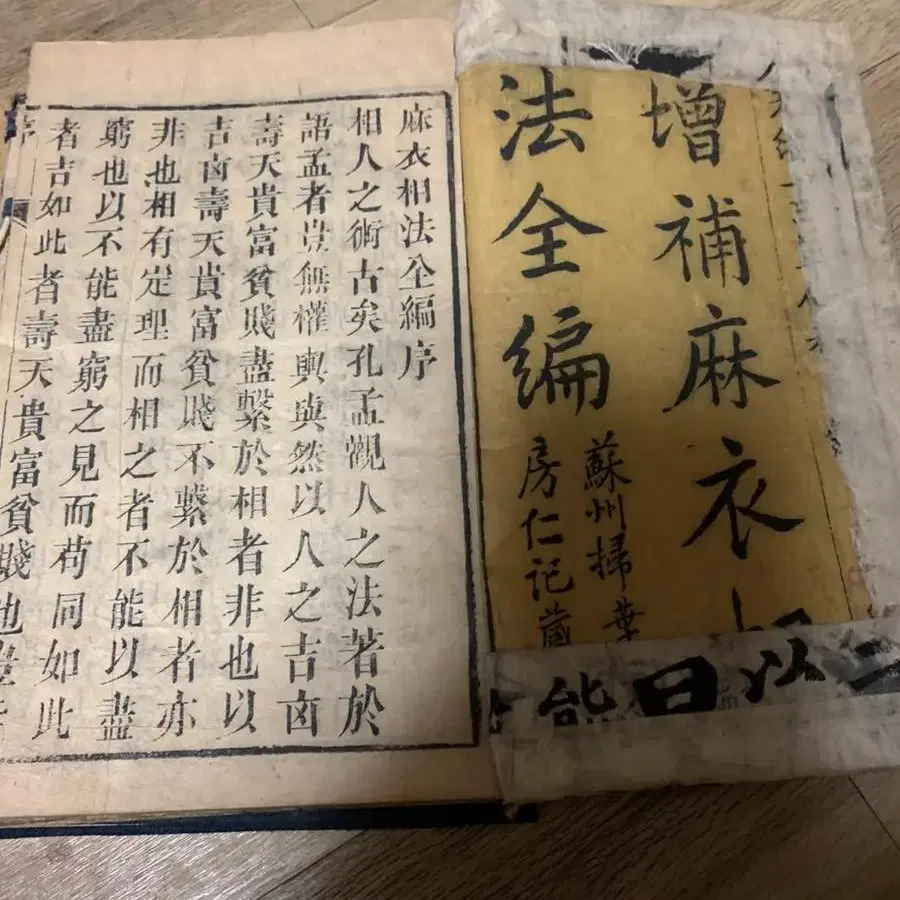 增補麻衣相
法全编
蘇州掃葉
房仁记藏
能曰以二
麻衣相法全編序
相人之術古矣孔孟觀人之法著於
語孟者豈無權輿與然以人之吉凶
壽夭貴富貧賤盡繫於相者非也以
吉凶壽夭貴富貧賤不繫於相者亦
非也相有定理而相之者不能以盡
窮也以不能盡窮之見而苟同如此
者吉如此者壽夭貴富貧賤也
序